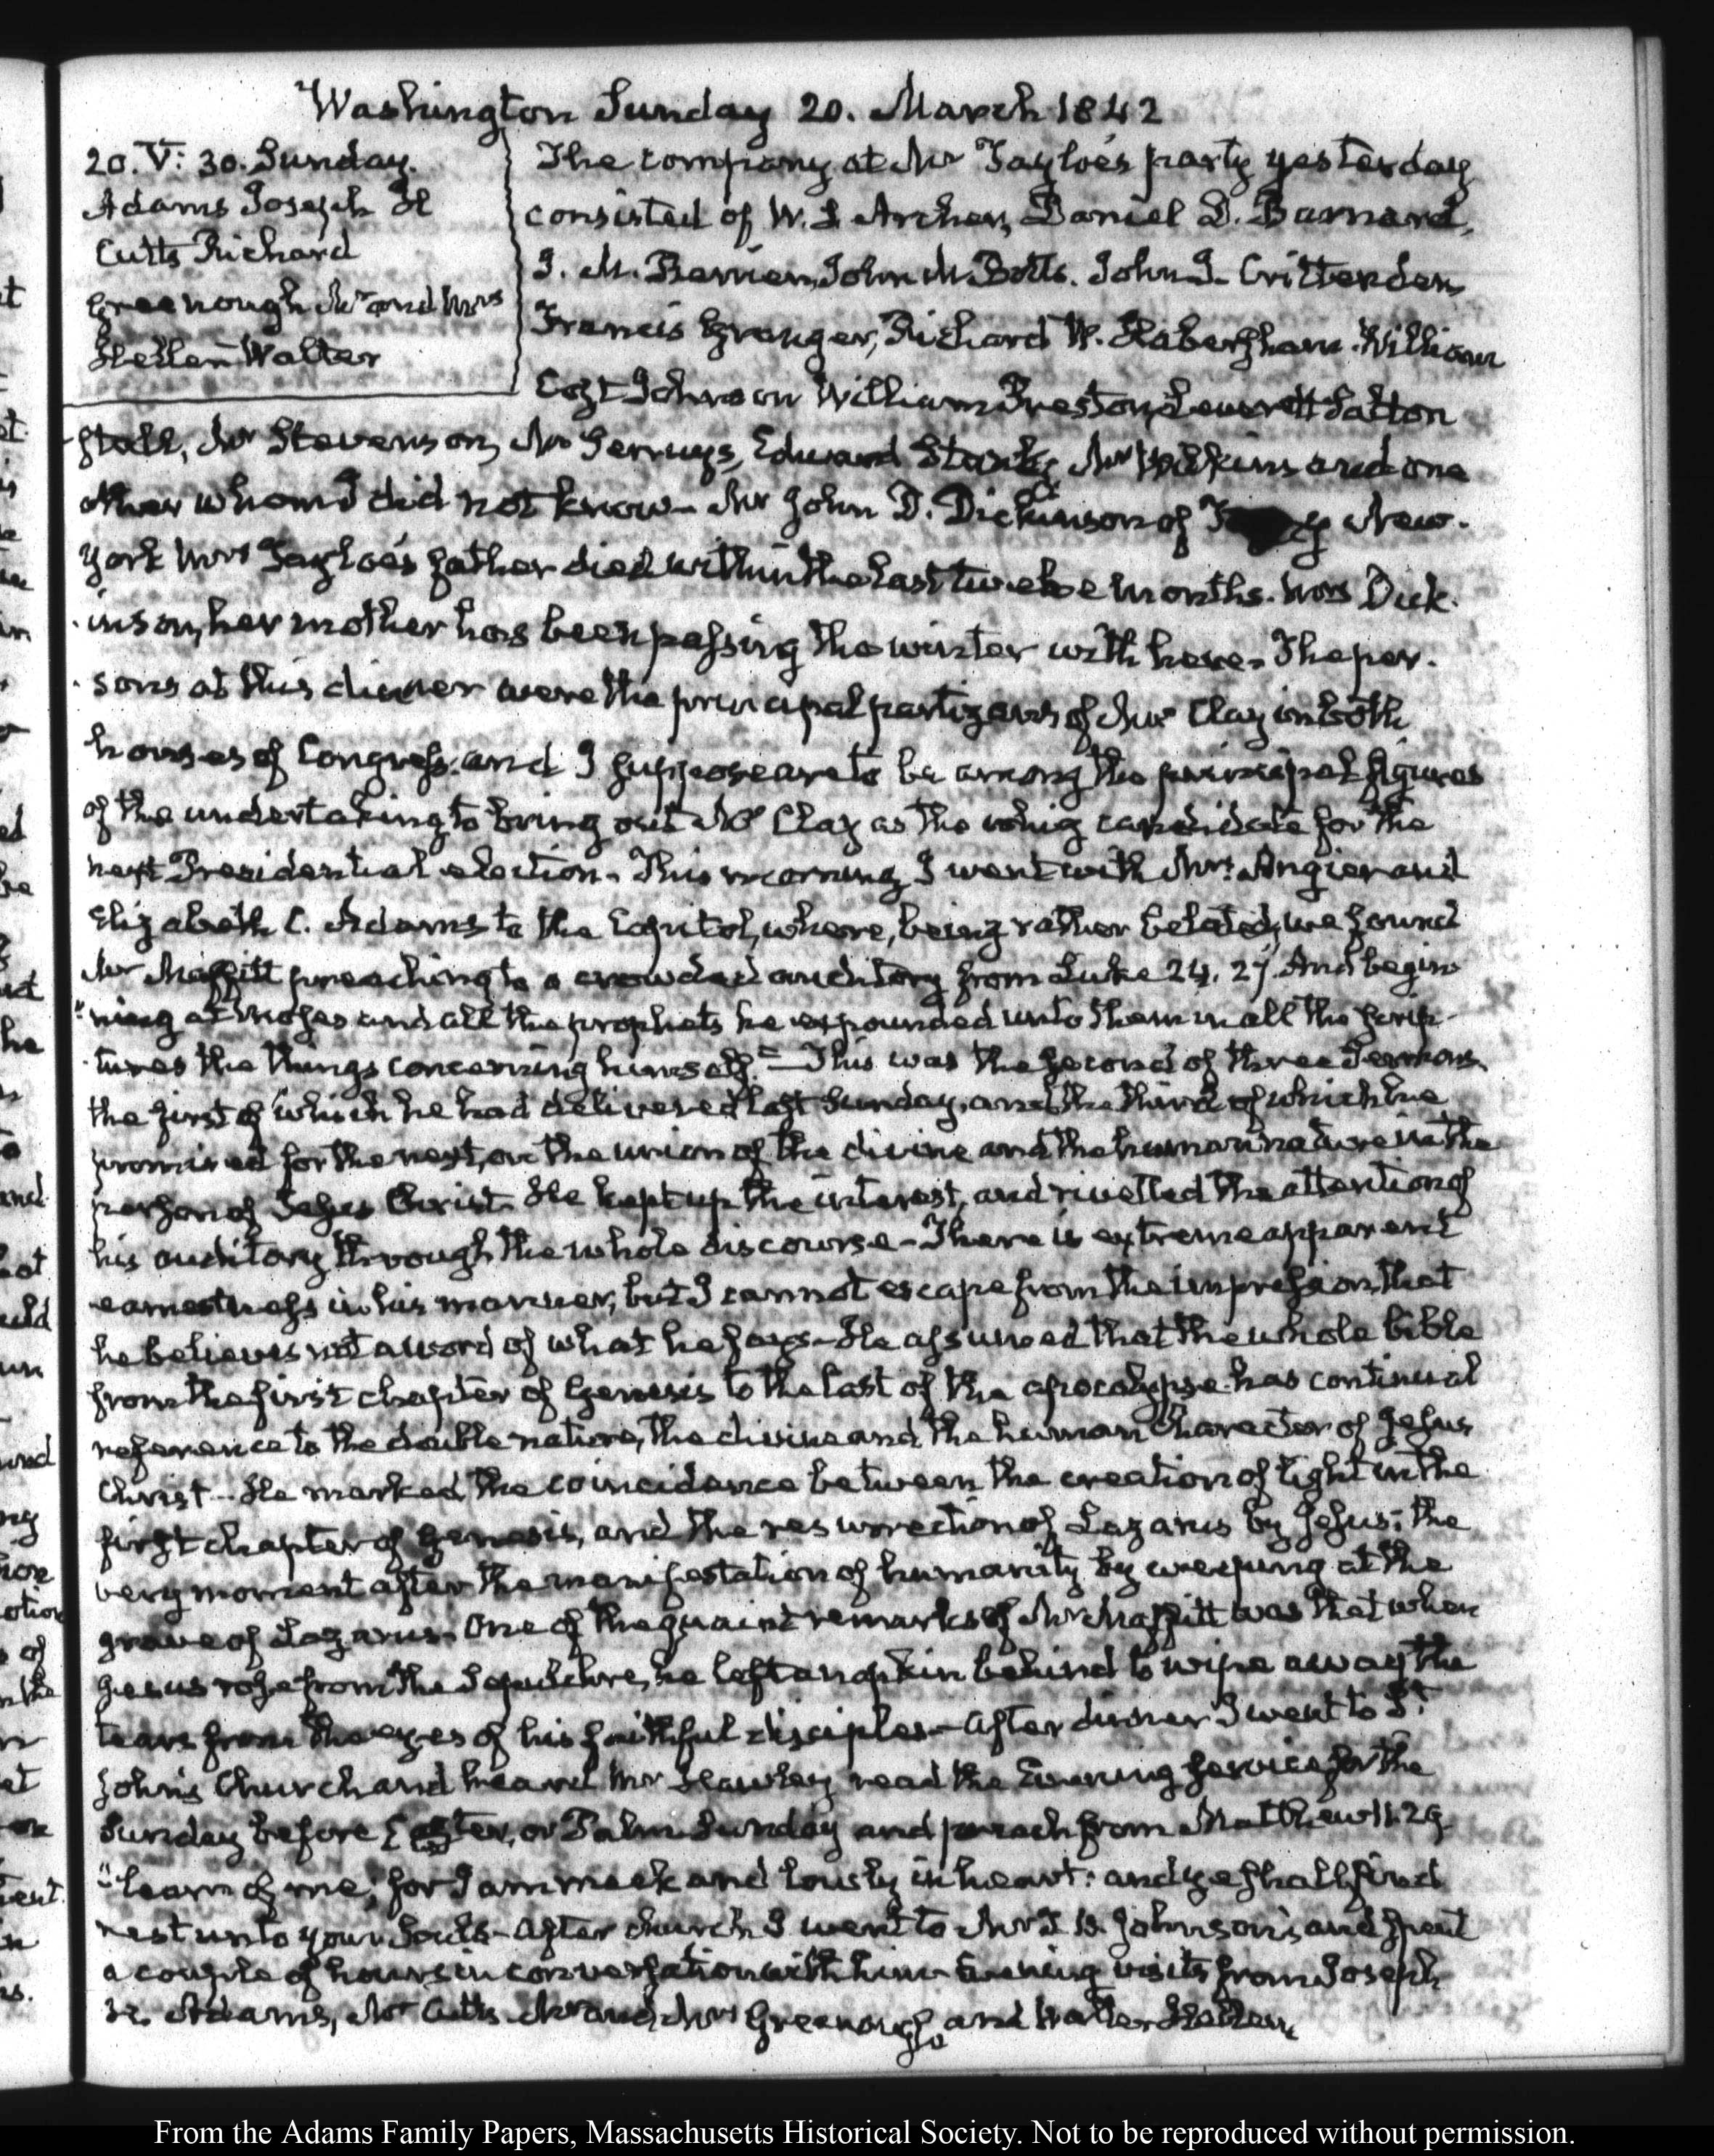 Washington Sunday 20. March 1842
20. V: 30. Sunday.
Adams Joseph H
Cutts Richard
Greenough Mr and Mrs
Hellen Walter
The company at Mr Tayloe's party yesterday
consisted of W. S Archer, Daniel D. Barnard,
J. M. Berrien, John M Botts. John J. Crittenden,
Francis Granger, Richard W. Habersham. William
Cost Johnson William Preston, Leverett Salton
stall, Mr Stevenson, Mr Edward Stanly, Mr and one
other whom I did not know- Mr John D. Dickinson of Troy New-
York Mrs Tayloe's father died within the last twelve months. Mrs Dick-
inson, her mother has been passing the winter with here. The per-
sons at this dinner were the principal partizans of Mr Clay in both
houses of Congress, and I suppose are to be among the principal figures
of the undertaking to bring out Mr Clay as the whig candidate for the
next Presidential election. This morning I went with Mrs Angier and
Elizabeth C. Adams to the Capitol, where, being rather belated, we found
Mr Maffitt preaching to a crowded auditory from Luke 24. 27. And begin
"ning at Moses and all the prophets he expounded unto them in all the scrip-
tures the things concerning himself."- This was the second of three Sermons
the first of which he had delivered last Sunday, and the third of which he
promised for the next, on the union of the divine and the human nature in the
person of Jesus Christ- He kept up the interest, and rivetted the attention of
his auditory through the whole discourse- There is extreme apparent
earnestness in his manner, but I cannot escape from the impression, that
he believes not a word of what he says- He assumed that the whole bible
from the first chapter of Genesis to the last of the apocalypse has continual
reference to the double nature, the divine and the human Character of Jesus
Christ- He marked the coincidence between the creation of light in the
first chapter of Genesis, and the resurrection of Lazarus by Jesus; the
very moment after the manifestation of humanity by weeping at the
grave of Lazarus. One of the quaint remarks of Mr Maffitt was that when
Jesus rose from the Sepulchre, he left a napkin behind to wipe away the
tears from the eyes of his faithful disciples- After dinner I went to St
John's Church and heard Mr Hawley read the Evening service for the
Sunday before Easter, or Palm Sunday and preach from Matthew 11. 29
"learn of me; for I am meek and lowly in heart: and ye shall find
rest unto your Souls- After church I went to Mr Johnson's and spent
a couple of hours in conversation with him- Evening visits from Joseph
H. Adams, Mr Cutts Mr and Mrs Greenough and Walter Hellen
From the Adams Family Papers, Massachusetts Historical Society. Not to be reproduced without permission.